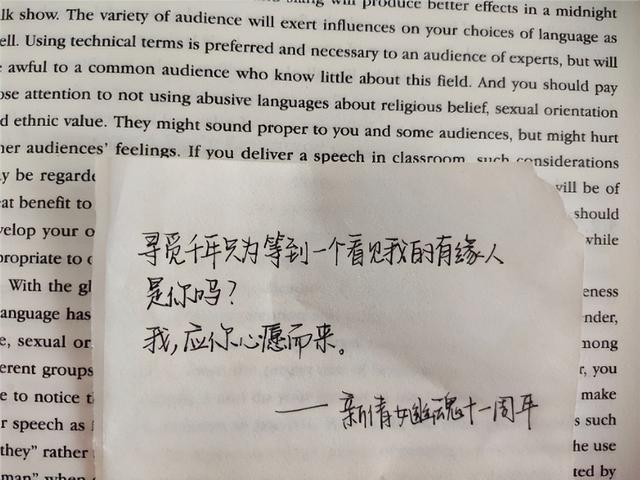 slang will produce better effects in a midnight
lk show. The variety of audience will exert influences on your choices of language as
ell. Using technical terms is preferred and necessary to an audience of experts, but will
e awful to a common audience who know little about this field. And you should pay
ose attention to not using abusive languages about religious belief, sexual orientation
d ethnic value. They might sound proper to you and some audiences, but might hurt
her audiences' feelings. If you deliver a speech in classroom, such considerations
y be regarde
will be of
eat benefit to
should
velop your o
while
propriate to c
With the gl
eness
anguage has
nder,
e, sexual or
mong
erent groups
r, you
e to notice t
make
r speech as
s such
they” rather
he use
man” when
ted by
寻觅千年只为等到一个看见我的有缘人
是你吗？
我，应你心愿而来。
——新倩女幽魂十一周年